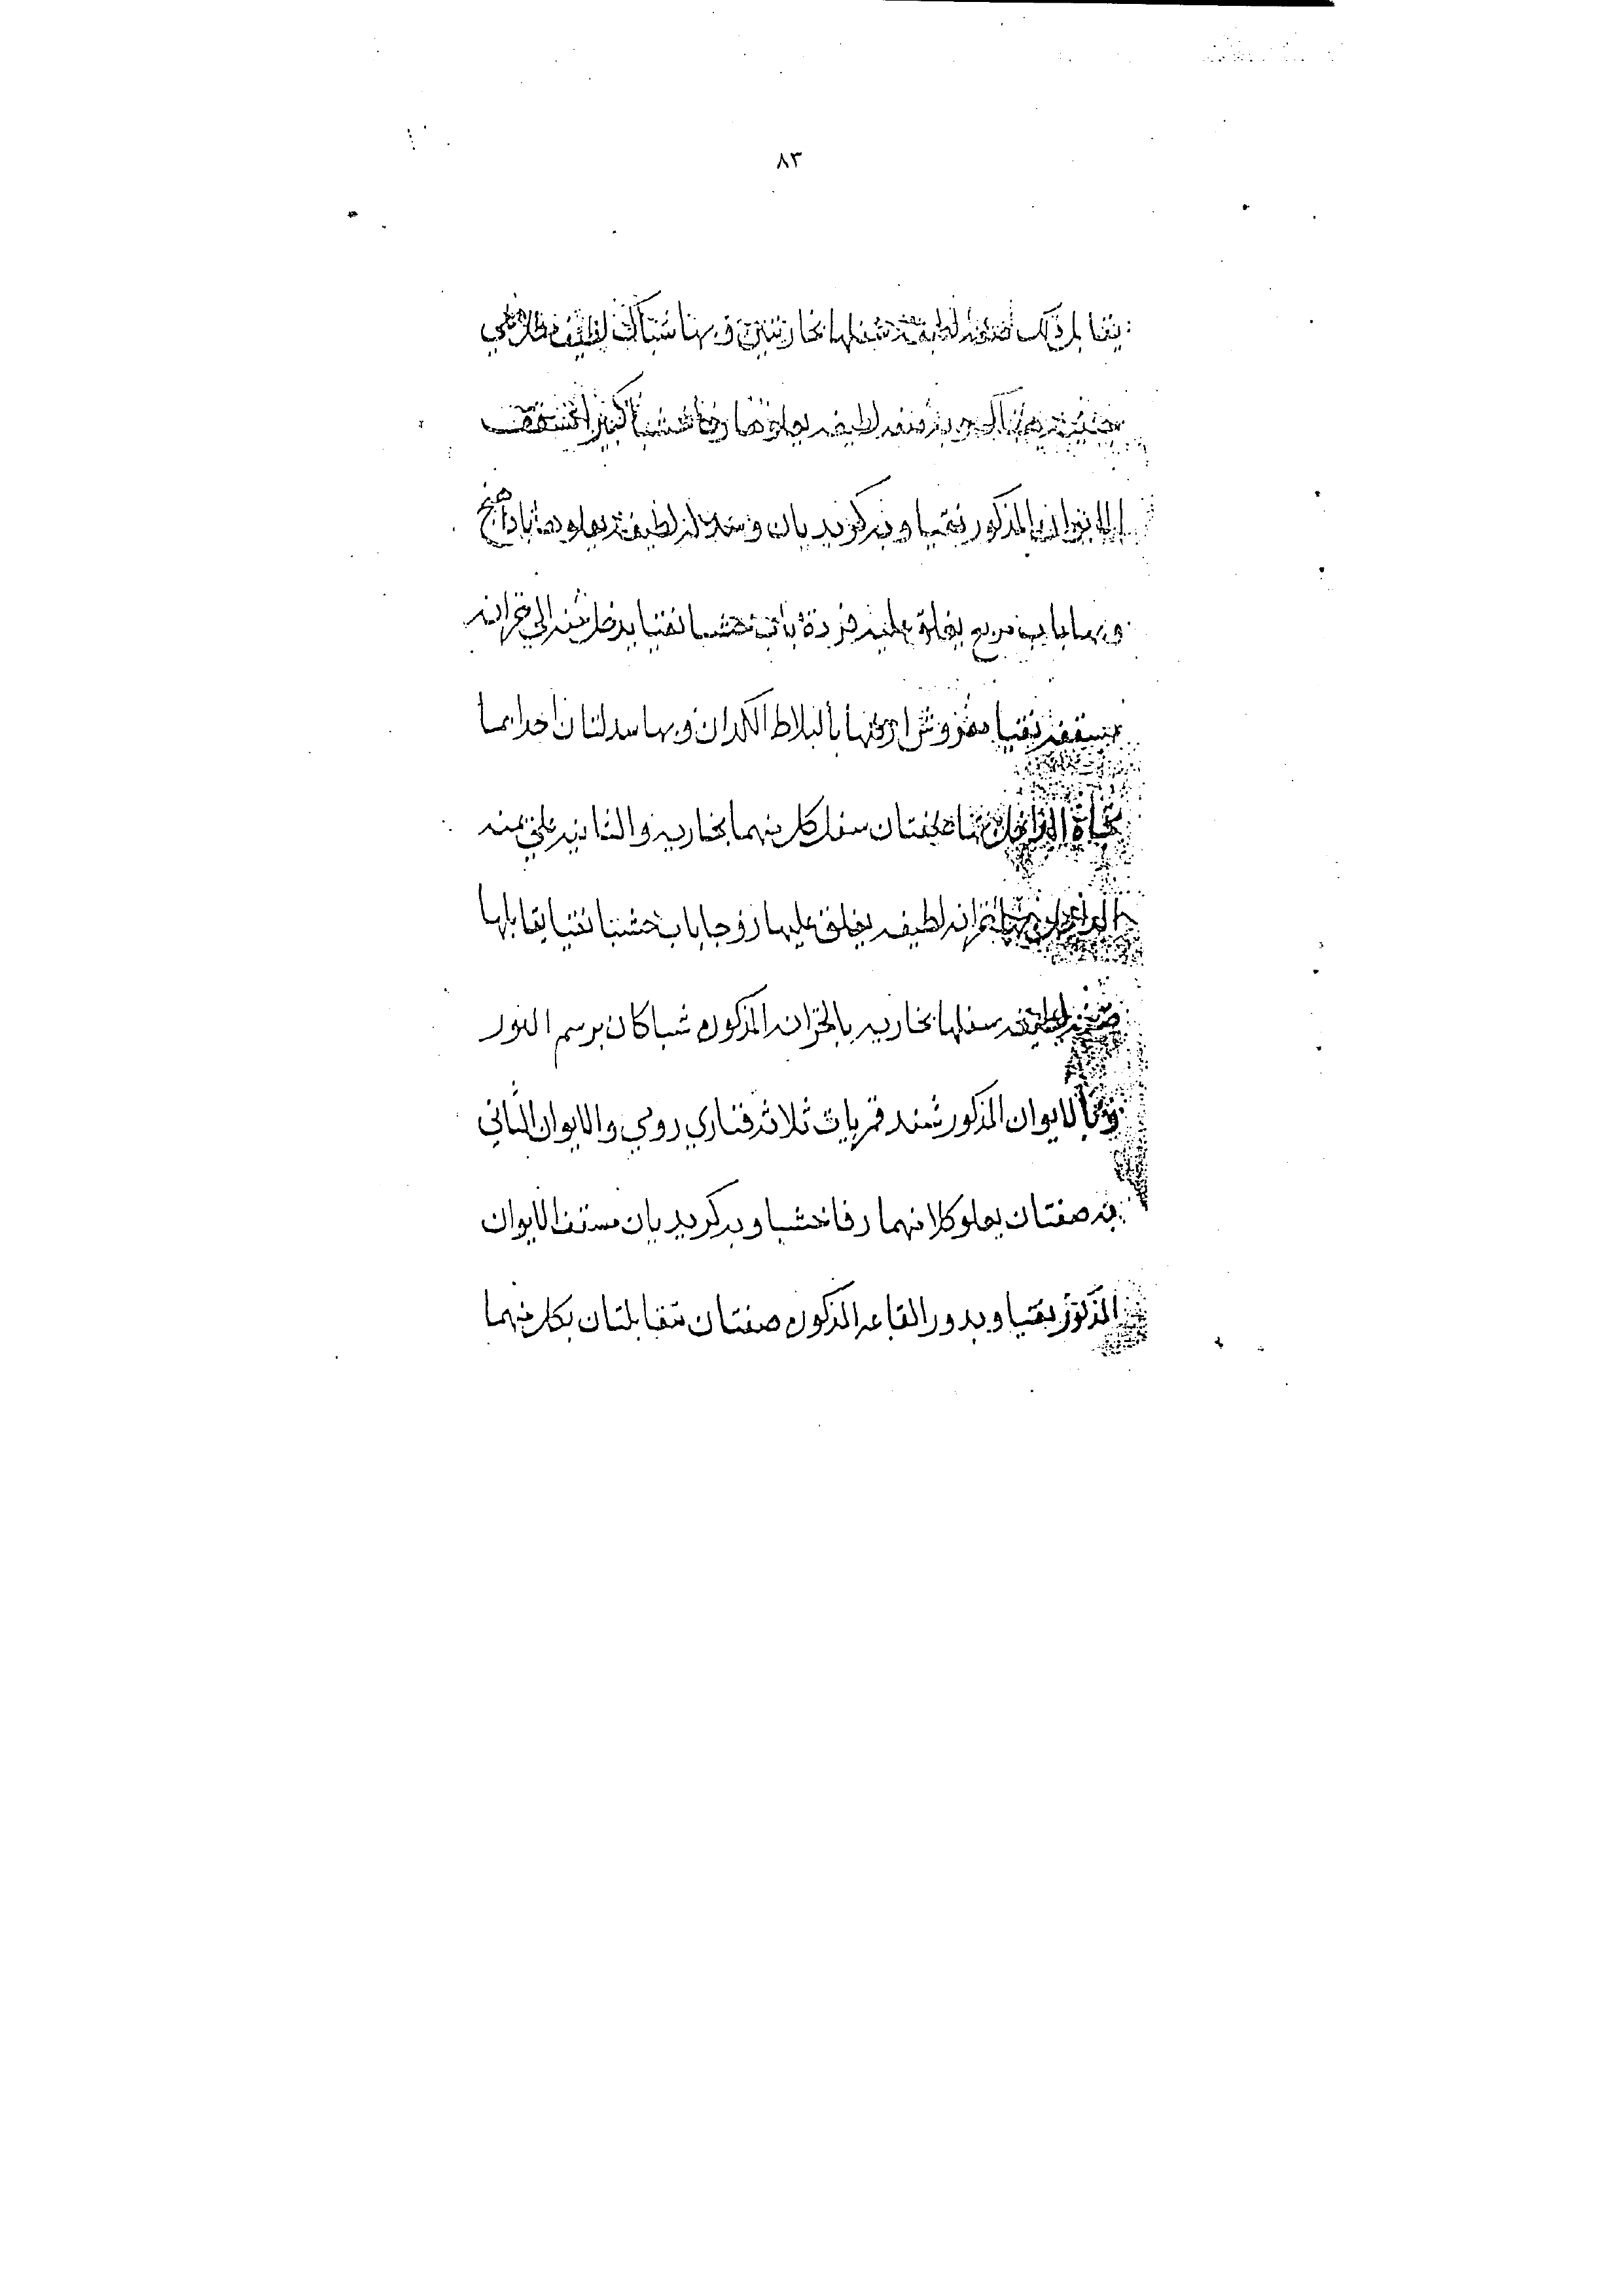 ٨٣
يقابل ذلك صفه لطيفة سفلها بخاريتين وبها شباك لطيف مطل علي
جنينة هناك وبه صفه لطيفه يعلوها رفا خشبا كبيرا مسقف
الايوان المذكور نقيا وبه كريديان وسدلة لطيفة يعلوها باداهنج
وبها باب مربع يغلق عليه فردة باب خشبا نقيا يدخل منه الي خزانه
مسقفه نقيا مفروش ارضها بالبلاط الكدان وبها سدلتان احداهما
تجاه الداخل بها صفتان سفل كل منهما بخاريه والثانيه علي يمنه
الداخل بها خزانه لطيفه يغلق عليها زوجا باب خشبا نقيا يقابلها
صفه لطيفه سفلها بخاريه بالخزانه المذكوره شباكان برسم النور
وبالايوان المذكور قمريات ثلاثه قناري رومي والايوان الثاني
به صفتان يعلو كلا منهما رفا خشبا وبه كريديان مسقف الايوان
المذكور نقيا وبدور القاعه المذكوره صفتان متقابلتان بكل منهما